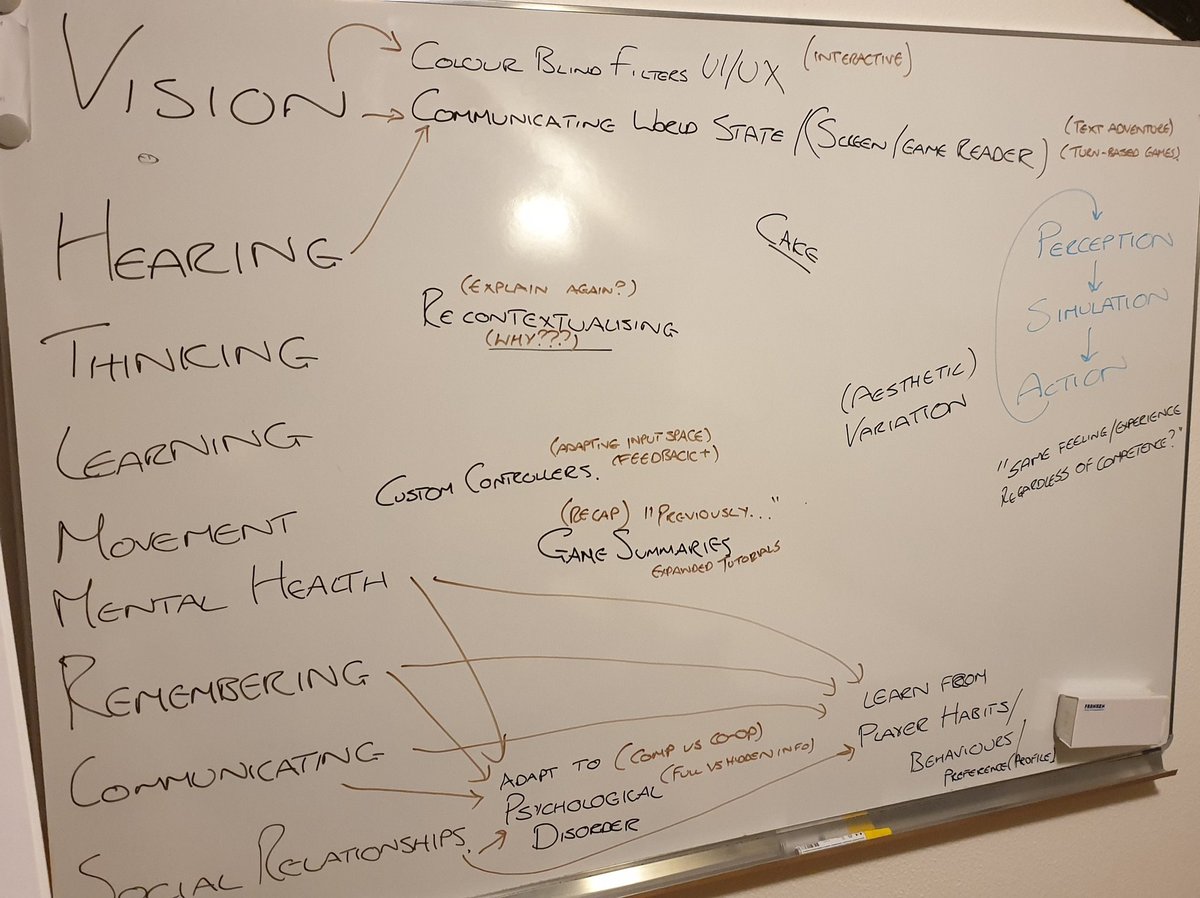 VISION
COLOUR BLIND FILTERS UI/UX (INTERACTIVE)
COMMUNICATING WORLD STATE/(SCREEN/GAME READER)
(TEXT ADVENTURE)
(TURN-BASED GAMES)
HEARING
CAKE
PERCEPTION
SIMULATION
ACTION
(EXPLAIN AGAIN?)
RECONTEXTUALISING
(WHY???)
THINKING
(AESTHETIC)
VARIATION
"SAME FEELING/EXPERIENCE
REGARDLESS OF COMPETENCE?"
LEARNING
(ADAPTING INPUT SPACE)
(FEEDBACK+)
CUSTOM CONTROLLERS.
MOVEMENT
(RECAP) "PREVIOUSLY..."
GAME SUMMARIES
EXPANDED TUTORIALS
MENTAL HEALTH
REMEMBERING
LEARN FROM
PLAYER HABITS/
BEHAVIOURS/
PREFERENCE (PROFILE)
COMMUNICATING
ADAPT TO (COMP VS CO-OP)
PSYCHOLOGICAL (FULL VS HIDDEN INFO)
DISORDER
SOCIAL RELATIONSHIPS.
FRANKEN